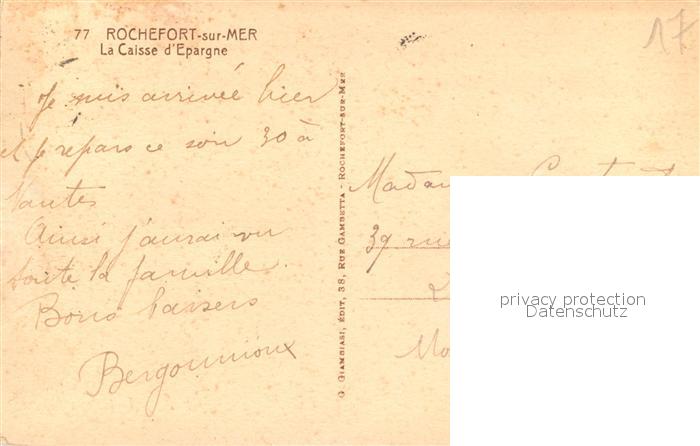 77 ROCHEFORT-sur-MER
La Caisse d'Epargne
17
Je suis arrivée hier
et je repars ce soir 30 à
Nantes
Ainsi j'aurai vu
toute la famille.
Bons baisers
Bergounioux
G. GIAMBIASI, ÉDIT, 38, RUE GAMBETTA - ROCHEFORT-SUR-MER
39 rue
privacy protection
Datenschutz